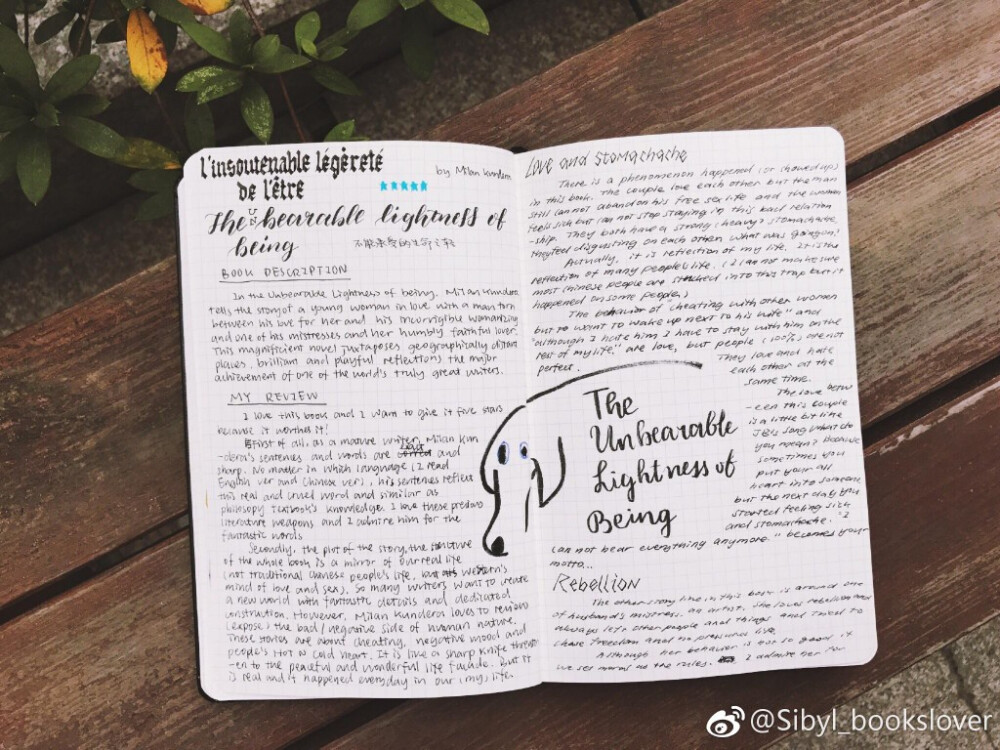 l'insoutenable légèreté
de l'être
by Milan Kundera
The Unbearable lightness of
being
不能承受的生命之轻
BOOK DESCRIPTION
In the Unbearable Lightness of being, Milan Kundera
tells the story of a young woman in love with a man torn
between his love for her and his incorrigible womanizing
and one of his mistresses and her humbly faithful lover.
This magnificent novel juxtaposes geographically distant
places, brilliant and playful reflections, the major
achievement of one of the world's truly great writers.
MY REVIEW
I love this book and I want to give it five stars
because it worths it!
First of all, as a mature writer, Milan Kun
-dera's sentences and words are and
sharp. No mader in which language (I read
English ver and Chinese ver), his sentences reflect
this real and cruel word and similar as
philosopy textbook's knowledge. I love these
literature weapons and I admire him for the
fantastic words
Secondly, the plot of the story, the
of the whole book is a mirror of our real life
(not traditional Chinese people's life, western's
mind of love and sex). So many writers want to create
a new world with fantastic details and dedicated
construction. However, Milan Kundera loves to
(expose) the bad/negative side of human nature.
These stories are about cheating, negative mood and
people's Hot N Cold heart. It is like a sharp knife threat
-en to the peaceful and wonderful life facade. But it
is real and it happened everyday in our (my) life.
Love and Stomachache
There is a phenomenon happened (or showed up)
in this book. The couple love each other but the man
still cannot abandon his free sex life and the woman
feels sick but can not stop staying in this bad relation
-ship. They both have a strong (heavy) stomachache
they feel disgusting on each other. What was going on?
Actually, it is reflection of my life. It is the
reflection of many people's life. (I can not make sure
most chinese people are stucked into this trap but it
happened on some people.)
The behavior of "cheating with other women
but so want to wake up next to his wife" and
"although I hate him I have to stay with him on the
rest of my life." are love, but people (100%) are not
perfect.
They love and hate
each other at the
same time.
The love betw
-een this couple
is a little bit like
JB's song What do
you mean? because
sometimes you
put your all
heart into someone
but the next day you
started feeling sick
and stomachache. "I
can not bear everything anymore" becomes your
motto...
The
Unbearable
Lightness of
Being
Rebellion
The other story line in this book is around one
of husband's mistress, an artist. She loves rebellion and
always left other people and things and tried to
chase freedom and no pressure live.
Although her behavior is not so good if
we set moral as the rules. I admire her for
@Sibyl_bookslover